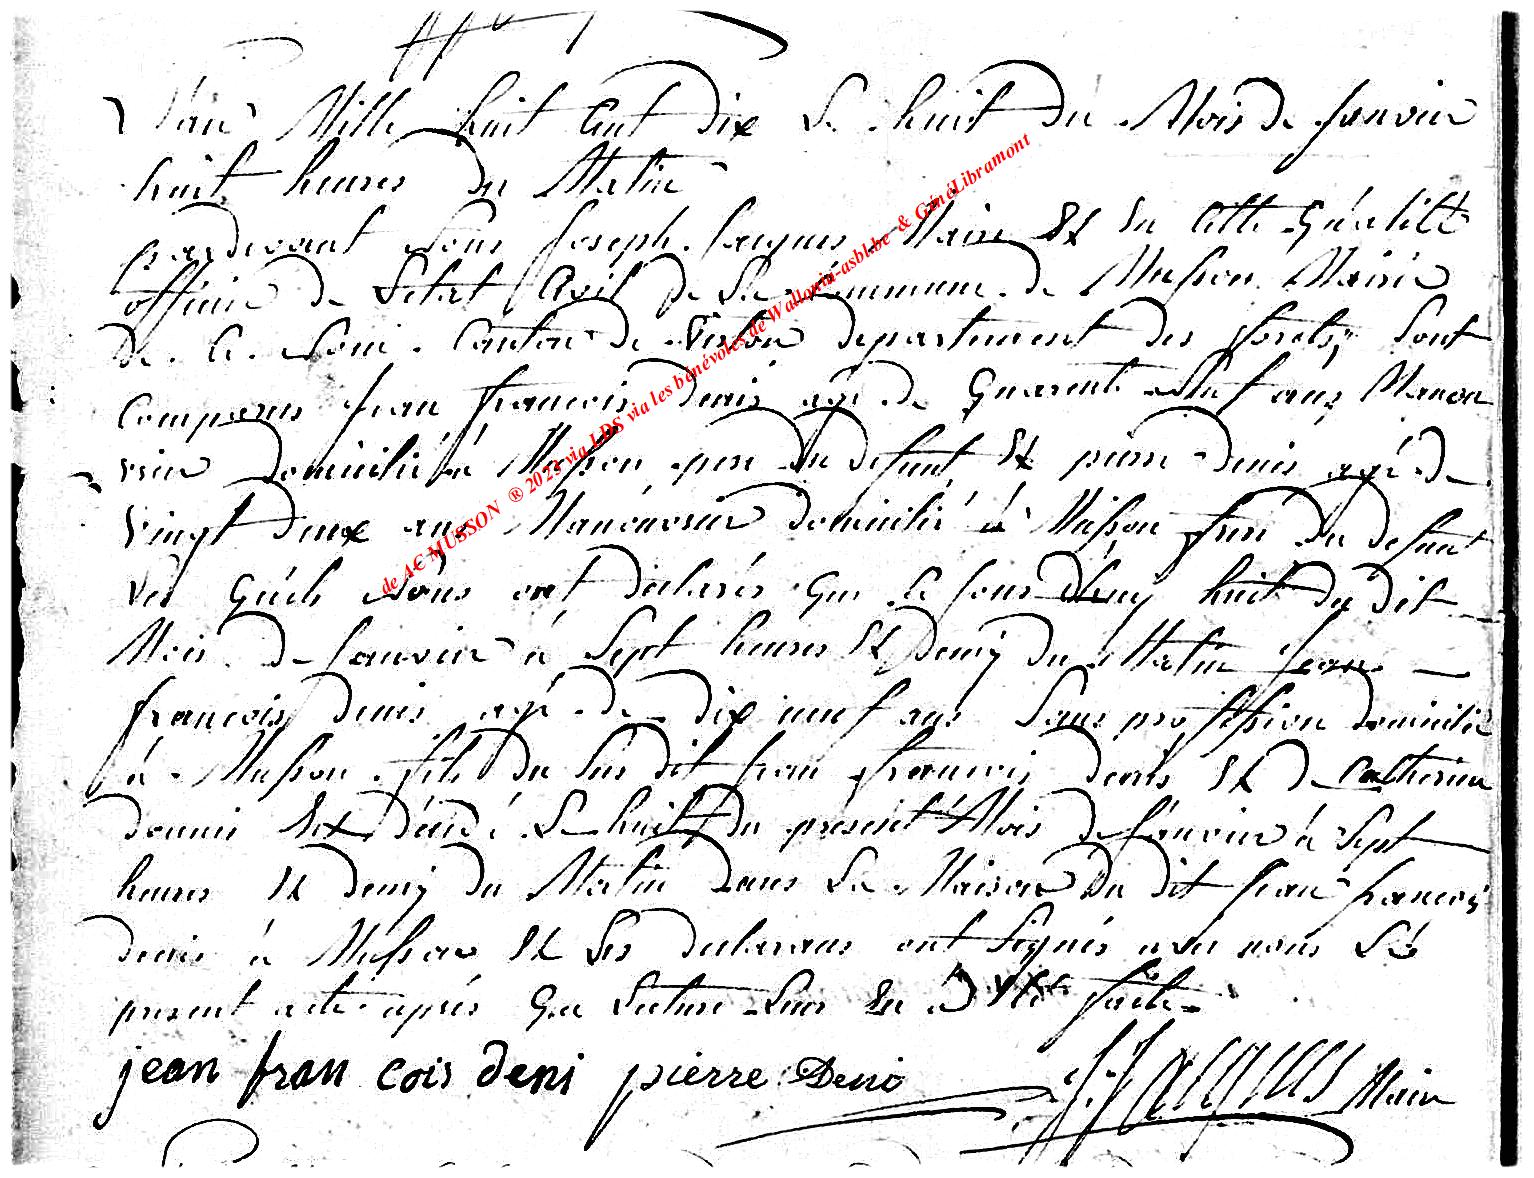 L'an Mille huit Cent dix Le huit du Mois de Janvier
huit heures du Matin
pardevant Nous Joseph Jacques Maire Et En Cette Qualitté
officier de L'etat Civil de La Commune de Musson Mairie
de Ce Nom Canton de Virton departement des forets, Sont
Comparus Jean francois denis agé de Quarente Neuf ans Manou
vrier domicilié à Musson pere du defunt Et pierre denis agé de
vingt deux ans Manouvrier domicilié à Musson frere du defunt
Les Quels Nous ont declarés que le Jour d'huy huit du dit
Mois de Janvier à Sept heures Et demy du Matin Jean
francois denis agé de dix neuf ans Sans profession domicilié
à Musson fils du Sus dit Jean francois denis Et de Catherine
Est décédé Le huit du présent Mois de Janvier à Sept
heures Et demy du Matin dans La Maison du dit Jean francois
denis à Musson Et Les declarans ont Signés avec nous Le
present acte après que Lecture Leur En à Eté faite
jean fran cois deni pierre Deni J. Jacques Maire
de AC MUSSON ® 2023 via LDS via les bénévoles de Wallonia-asbl.be & GénéLibramont